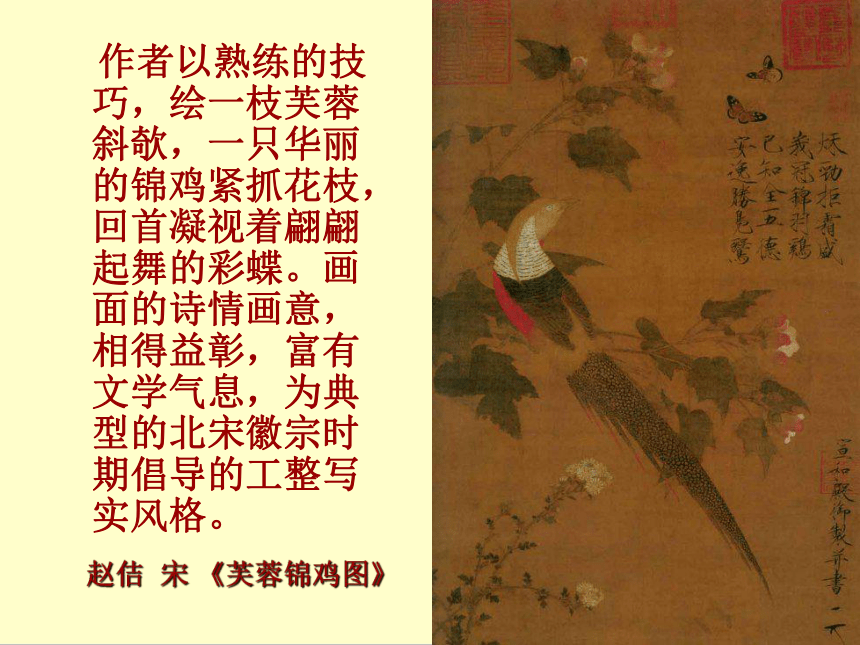 作者以熟练的技
巧，绘一枝芙蓉
斜欹，一只华丽
的锦鸡紧抓花枝，
回首凝视着翩翩
起舞的彩蝶。画
面的诗情画意，
相得益彰，富有
文学气息，为典
型的北宋徽宗时
期倡导的工整写
实风格。
赵佶 宋 《芙蓉锦鸡图》
秋勁拒霜盛
峩冠錦羽鷄
已知全五德
安逸勝鳧鷖
宣和殿御製并書